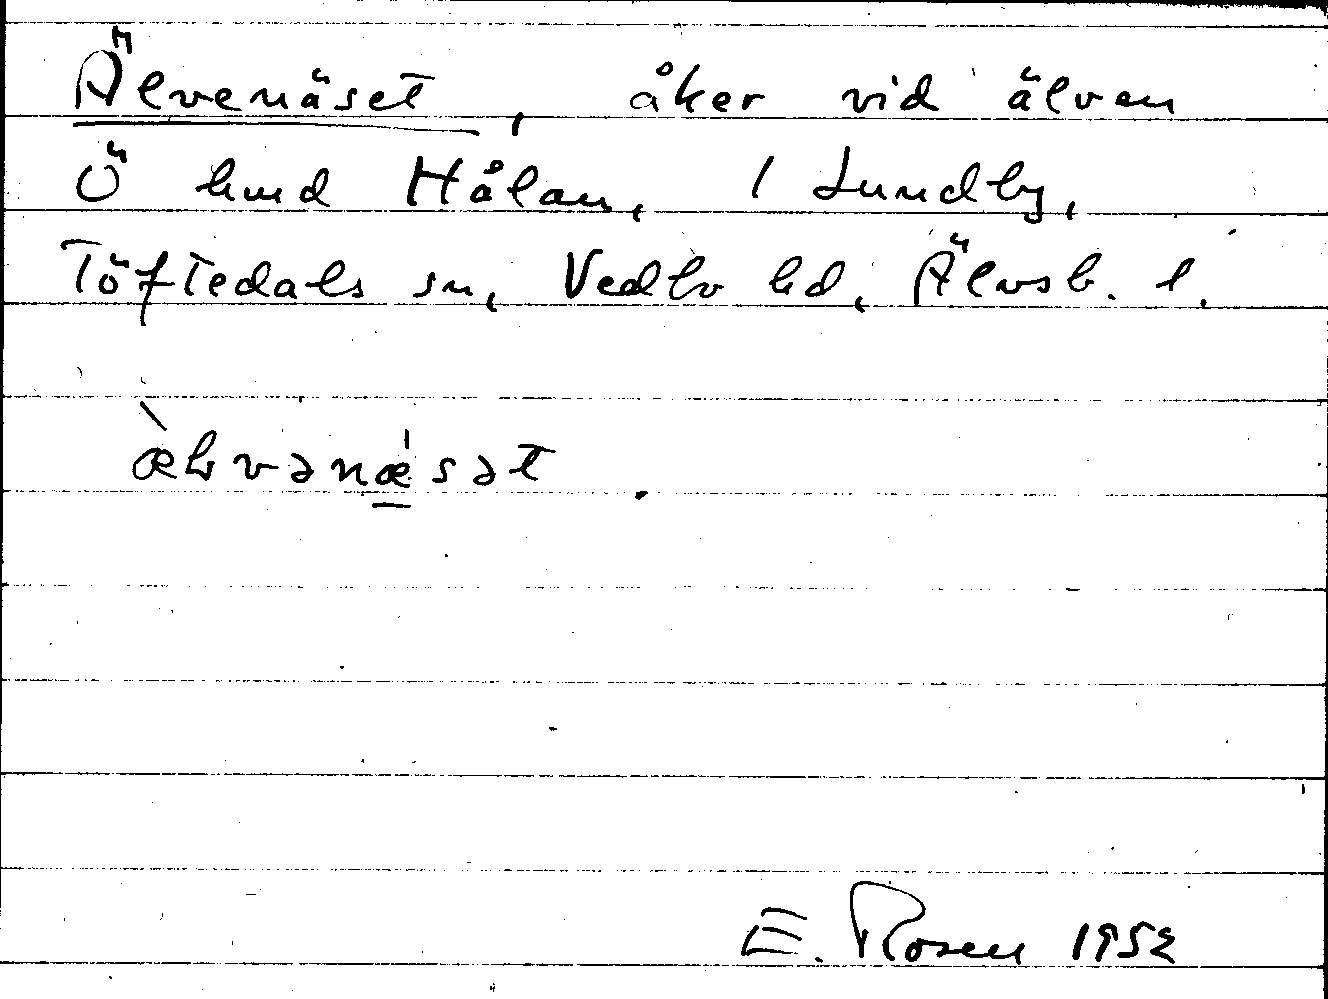 Älvenäset, åker vid älven
Ö hmd Hålan, 1 Lundby,
Töftedals sn, Vedbo hd, Älvsb. l.
æ̀lvənǽsət
E. Rosen 1952